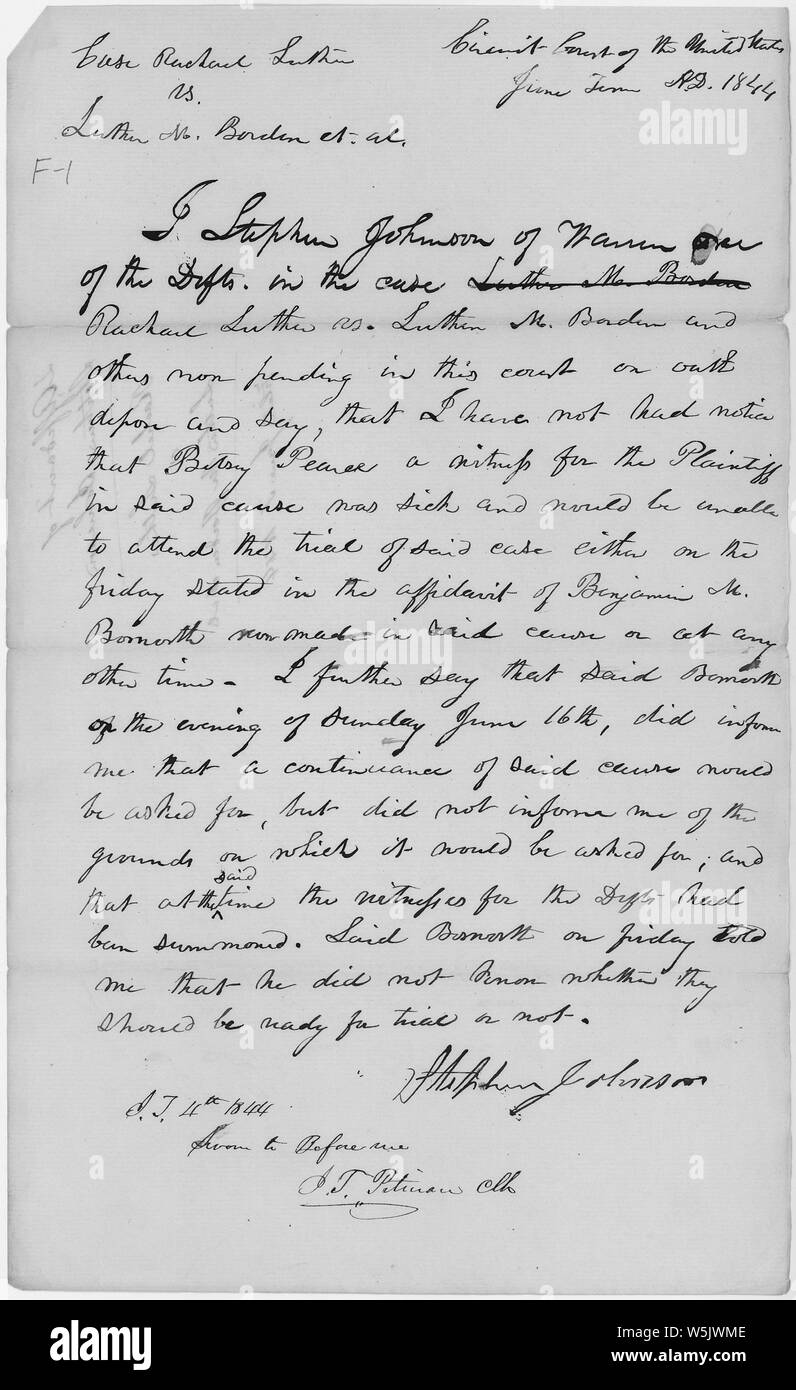 Case Rachael Luther
vs.
Luther M. Borden et. al.
Circuit Court of the United States
June Term A.D. 1844
F-1
I. Stephen Johnson of Warren one
of the Defts. in the case Luther M. Borden
Rachael Luther vs. Luther M. Borden and
others now pending in this court on oath
depose and say, that I have not had notice
that Betsey Pearce a witness for the Plaintiff
in said cause was sick and would be unable
to attend the trial of said case either on the
friday stated in the affidavit of Benjamin M.
Bosworth now made in said cause or at any
other time - I further say that said Bosworth
on the evening of Sunday June 16th, did inform
me that a continuance of said cause would
be asked for, but did not inform me of the
grounds on which it would be asked for; and
that at the said time the witnesses for the Defts had
been summoned. Said Bosworth on friday told
me that he did not know whether they
should be ready for trial or not.
Stephen Johnson
J. T. 4th 1844
Sworn to Before me
J. T. Pitman Clk
alamy
alamy
Image ID: W5JWME
www.alamy.com